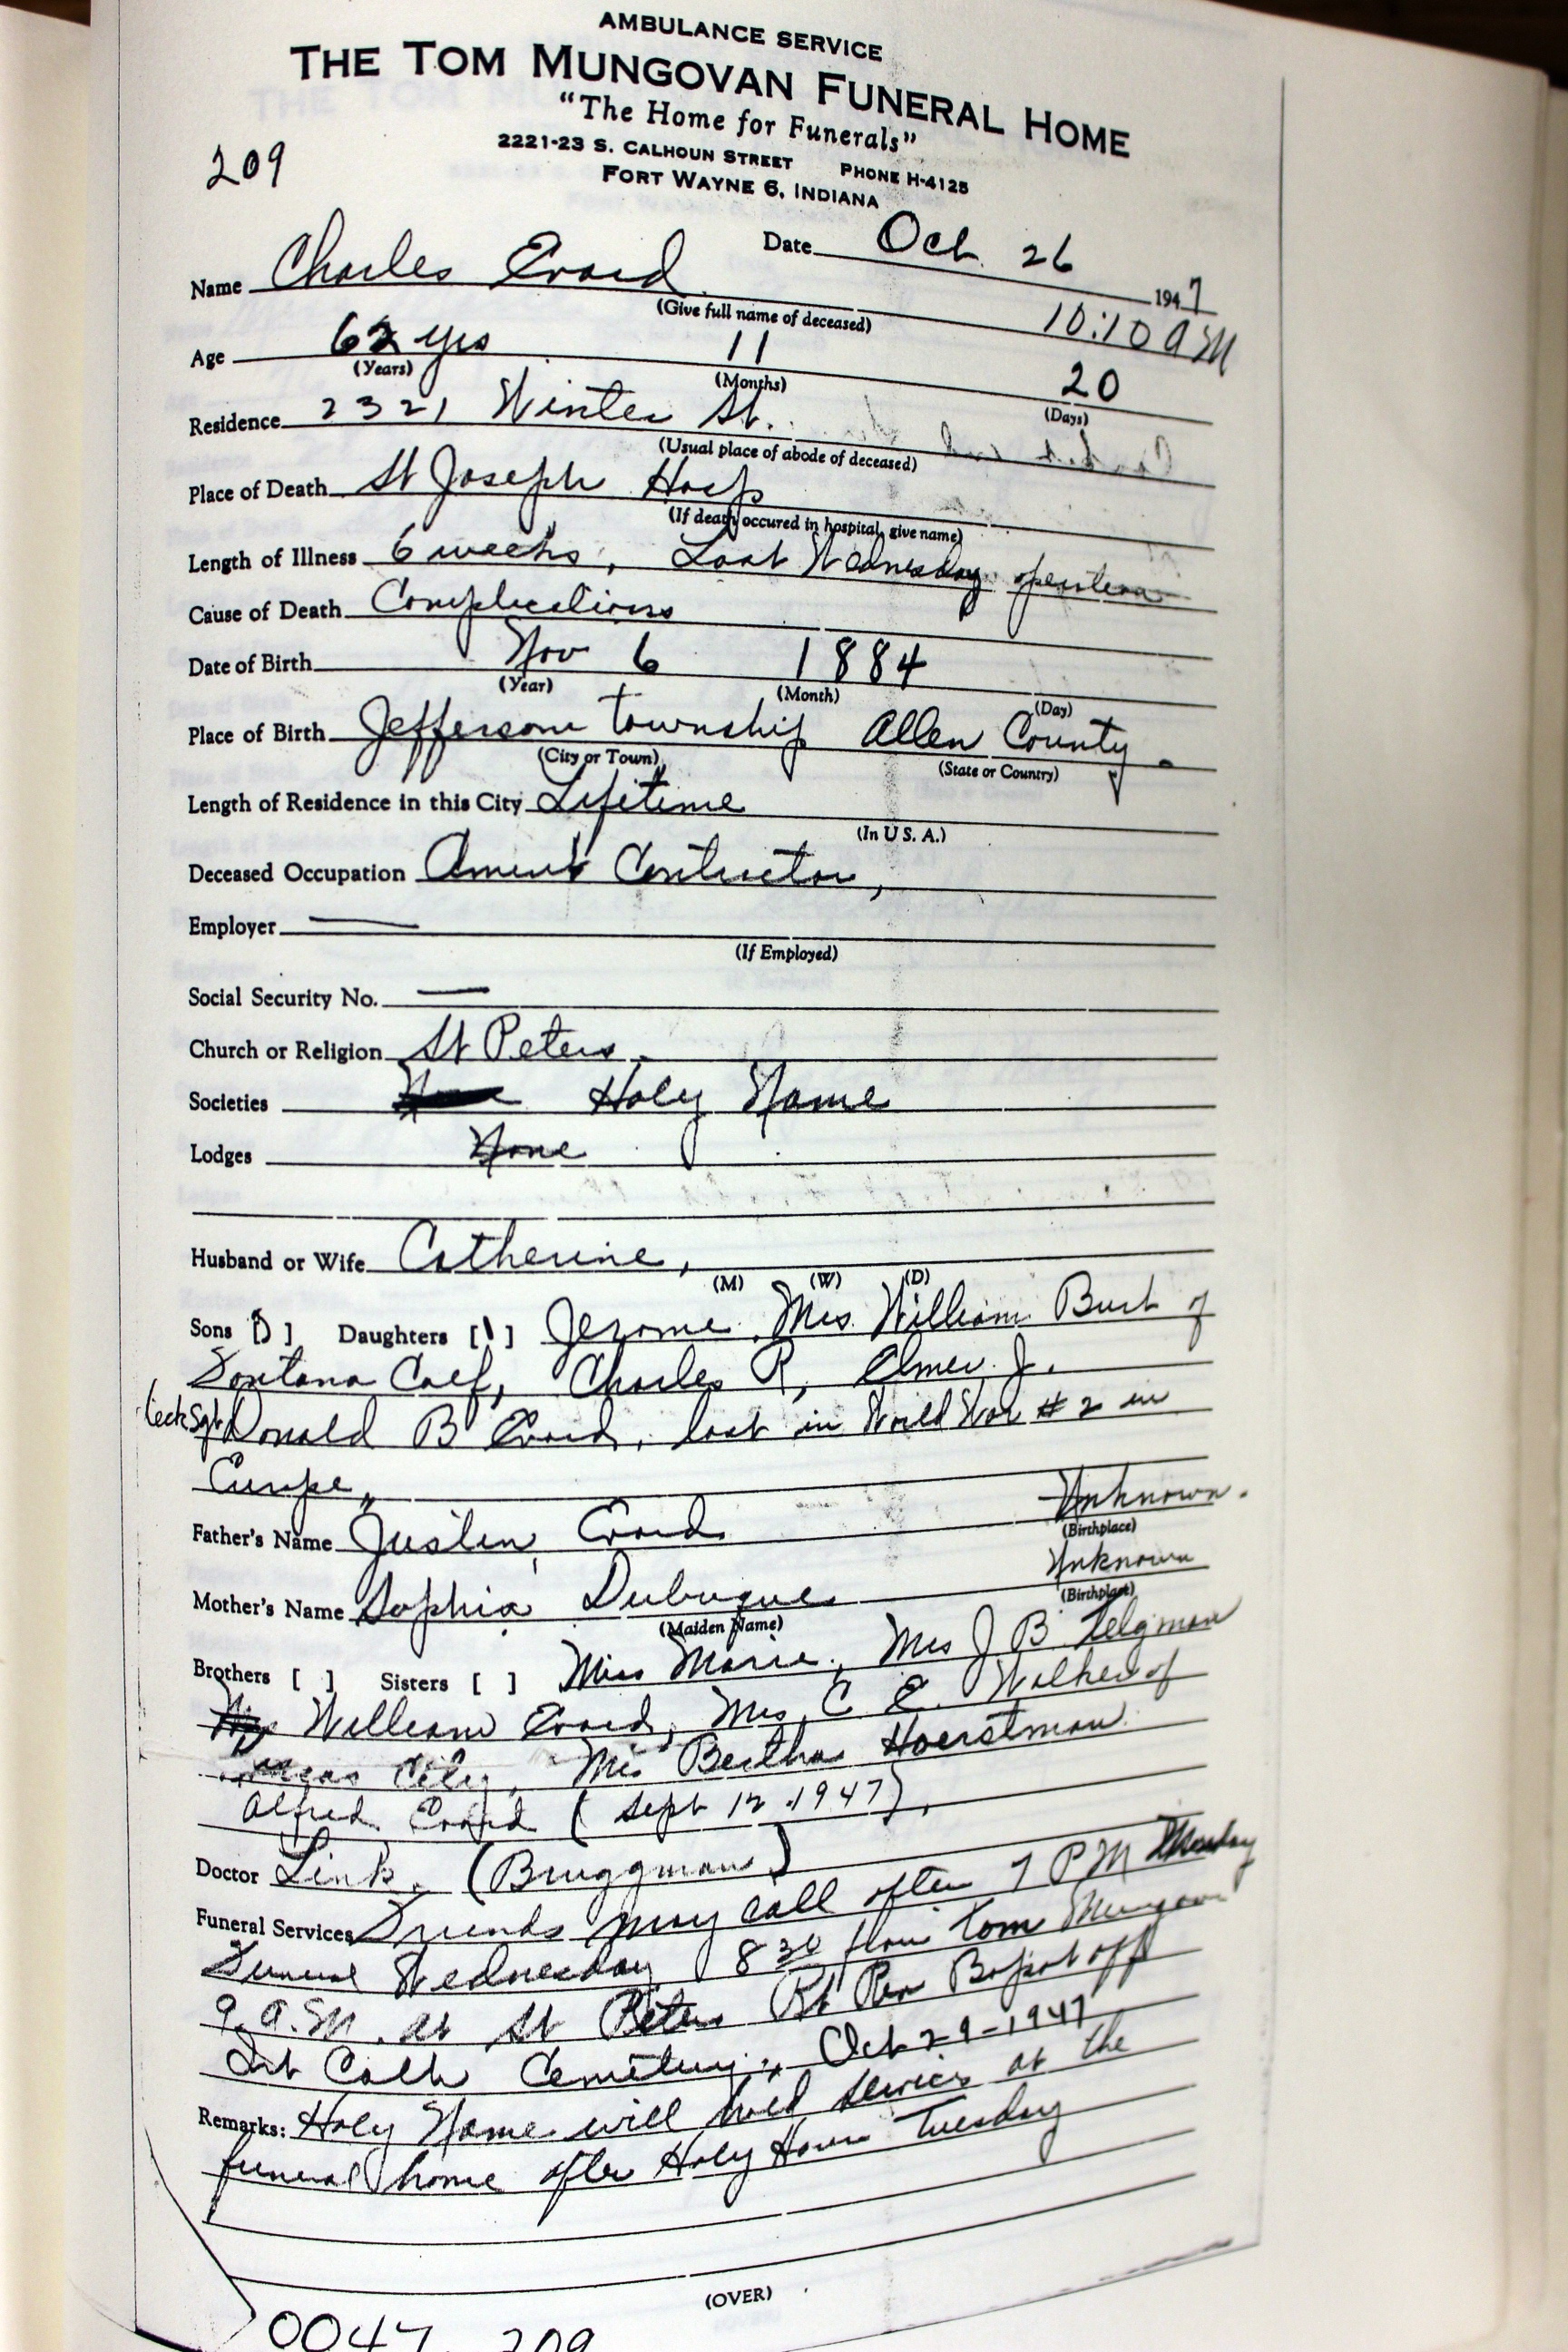 AMBULANCE SERVICE
THE TOM MUNGOVAN FUNERAL HOME
"The Home for Funerals"
2221-23 S. CALHOUN STREET PHONE H-4125
FORT WAYNE 6, INDIANA
209
Date Oct 26 1947
Name Charles Evard 10:10 AM
(Give full name of deceased)
Age 62 yrs 11 20
(Years) (Months) (Days)
Residence 2321 Winter St.
(Usual place of abode of deceased)
Place of Death St Joseph Hosp
(If death occured in hospital, give name)
Length of Illness 6 weeks, Last Wednesday operation
Cause of Death Complications
Date of Birth Nov 6 1884
(Year) (Month) (Day)
Place of Birth Jefferson township Allen County.
(City or Town) (State or Country)
Length of Residence in this City Lifetime
(In U. S. A.)
Deceased Occupation Contractor,
Employer —
(If Employed)
Social Security No. —
Church or Religion St Peters.
Societies Holy Name
Lodges None
Husband or Wife Catherine,
(M) (W) (D)
Sons [ ] Daughters [ ] Jerome, Mrs. William Burt of
Fontana Calf, Charles R, Elmer J.
Tech Sgt Donald B Evard, lost in World War #2 in
Europe,
Father's Name Justin Evard Unknown.
(Birthplace)
Mother's Name Sophia Dubuque Unknown
(Maiden Name) (Birthplace)
Brothers [ ] Sisters [ ] Miss Marie, Mrs J B Telgman
William Evard, Mrs. C E. Walker of
City, Mrs Bertha Hoerstman.
Alfred Evard (Sept 12 - 1947),
Doctor Link. (Bruggman)
Funeral Services Friends may call after 7 PM
Funeral Wednesday 8 30 from Tom Mungovan
9 A.M. at St Peters Rt Rev off
Int Cath Cemetery, Oct 29-1947
Remarks: Holy Name will hold services at the
funeral home after Holy Hour Tuesday
(OVER)
0047 209